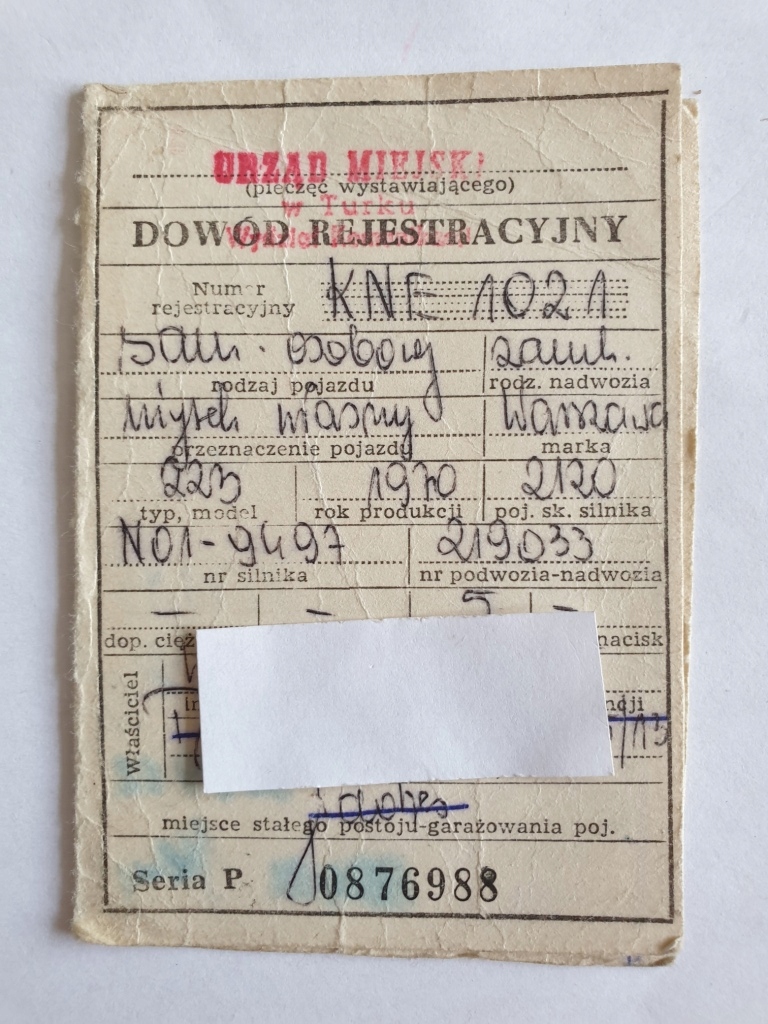 URZĄD MIEJSKI
(pieczęć wystawiającego)
w Turku
DOWÓD REJESTRACYJNY
Wydział
Numer rejestracyjny KNE 1021
sam. osobowy zamk.
rodzaj pojazdu rodz. nadwozia
użytek własny Warszawa
przeznaczenie pojazdu marka
223 1970 2120
typ, model rok produkcji poj. sk. silnika
N01-9497 219033
nr silnika nr podwozia-nadwozia
— — 5 —
dop. nacisk
Właściciel
miejsce stałego postoju-garażowania poj.
Seria P 0876988